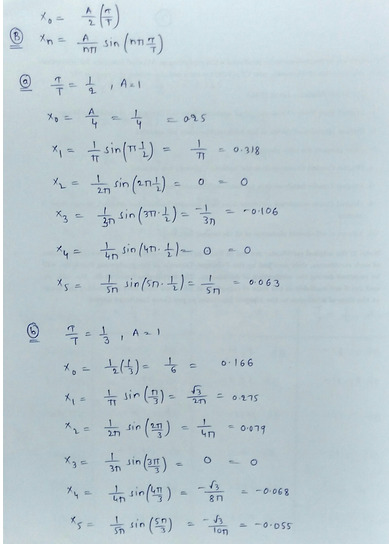 x₀ = A/2 (τ/T)
Ⓑ xₙ = A/nπ sin(nπ τ/T)
ⓐ τ/T = 1/2 , A=1
x₀ = A/4 = 1/4 = 0.25
x₁ = 1/π sin(π 1/2) = 1/π = 0.318
x₂ = 1/2π sin(2π 1/2) = 0 = 0
x₃ = 1/3π sin(3π · 1/2) = -1/3π = -0.106
x₄ = 1/4π sin(4π · 1/2) = 0 = 0
x₅ = 1/5π sin(5π · 1/2) = 1/5π = 0.063
ⓑ τ/T = 1/3 , A=1
x₀ = 1/2(1/3) = 1/6 = 0.166
x₁ = 1/π sin(π/3) = √3/2π = 0.275
x₂ = 1/2π sin(2π/3) = 1/4π = 0.079
x₃ = 1/3π sin(3π/3) = 0 = 0
x₄ = 1/4π sin(4π/3) = -√3/8π = -0.068
x₅ = 1/5π sin(5π/3) = -√3/10π = -0.055